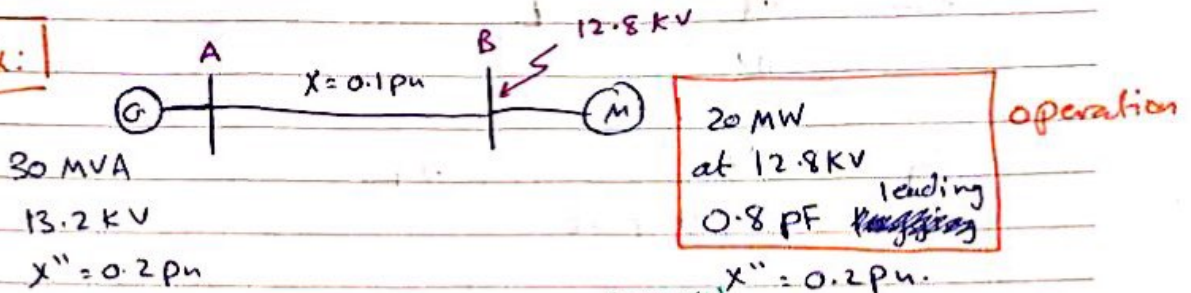 x:
A
B
12.8 KV
X = 0.1 pu
G
M
30 MVA
13.2 KV
X" = 0.2 pu
20 MW
at 12.8 KV
leading
0.8 pF
X" = 0.2 pu.
operation